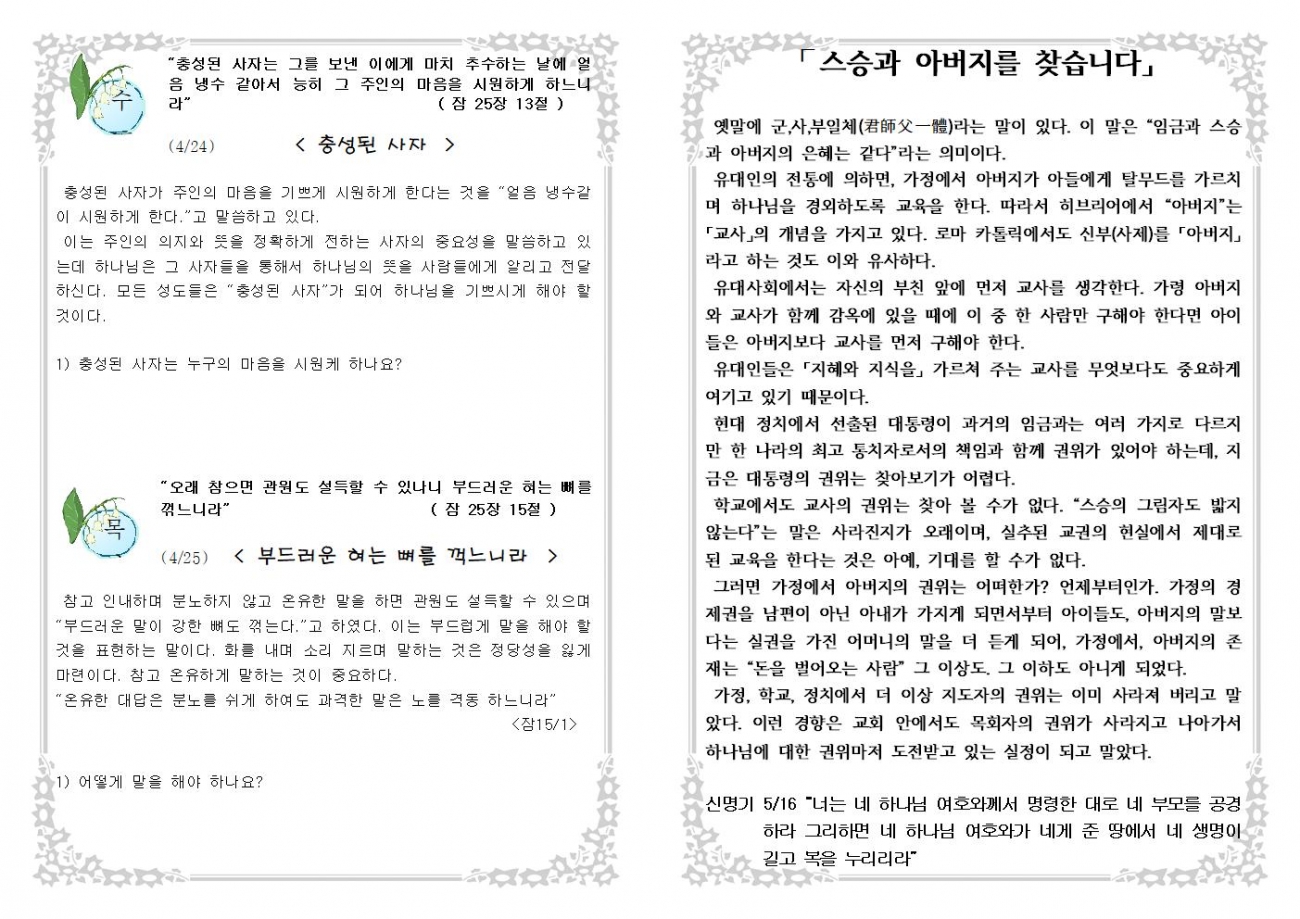 수
“충성된 사자는 그를 보낸 이에게 마치 추수하는 날에 얼
음 냉수 같아서 능히 그 주인의 마음을 시원하게 하느니
라” ( 잠 25장 13절 )
(4/24) < 충성된 사자 >
충성된 사자가 주인의 마음을 기쁘게 시원하게 한다는 것을 “얼음 냉수같
이 시원하게 한다.”고 말씀하고 있다.
이는 주인의 의지와 뜻을 정확하게 전하는 사자의 중요성을 말씀하고 있
는데 하나님은 그 사자들을 통해서 하나님의 뜻을 사람들에게 알리고 전달
하신다. 모든 성도들은 “충성된 사자”가 되어 하나님을 기쁘시게 해야 할
것이다.
1) 충성된 사자는 누구의 마음을 시원케 하나요?
목
“오래 참으면 관원도 설득할 수 있나니 부드러운 혀는 뼈를
꺾느니라” ( 잠 25장 15절 )
(4/25) < 부드러운 혀는 뼈를 꺽느니라 >
참고 인내하며 분노하지 않고 온유한 말을 하면 관원도 설득할 수 있으며
“부드러운 말이 강한 뼈도 꺾는다.”고 하였다. 이는 부드럽게 말을 해야 할
것을 표현하는 말이다. 화를 내며 소리 지르며 말하는 것은 정당성을 잃게
마련이다. 참고 온유하게 말하는 것이 중요하다.
“온유한 대답은 분노를 쉬게 하여도 과격한 말은 노를 격동 하느니라”
<잠15/1>
1) 어떻게 말을 해야 하나요?
「스승과 아버지를 찾습니다」
옛말에 군,사,부일체(君師父一體)라는 말이 있다. 이 말은 “임금과 스승
과 아버지의 은혜는 같다”라는 의미이다.
유대인의 전통에 의하면, 가정에서 아버지가 아들에게 탈무드를 가르치
며 하나님을 경외하도록 교육을 한다. 따라서 히브리어에서 “아버지”는
「교사」의 개념을 가지고 있다. 로마 카톨릭에서도 신부(사제)를 「아버지」
라고 하는 것도 이와 유사하다.
유대사회에서는 자신의 부친 앞에 먼저 교사를 생각한다. 가령 아버지
와 교사가 함께 감옥에 있을 때에 이 중 한 사람만 구해야 한다면 아이
들은 아버지보다 교사를 먼저 구해야 한다.
유대인들은 「지혜와 지식을」 가르쳐 주는 교사를 무엇보다도 중요하게
여기고 있기 때문이다.
현대 정치에서 선출된 대통령이 과거의 임금과는 여러 가지로 다르지
만 한 나라의 최고 통치자로서의 책임과 함께 권위가 있어야 하는데, 지
금은 대통령의 권위는 찾아보기가 어렵다.
학교에서도 교사의 권위는 찾아 볼 수가 없다. “스승의 그림자도 밟지
않는다”는 말은 사라진지가 오래이며, 실추된 교권의 현실에서 제대로
된 교육을 한다는 것은 아예, 기대를 할 수가 없다.
그러면 가정에서 아버지의 권위는 어떠한가? 언제부터인가. 가정의 경
제권을 남편이 아닌 아내가 가지게 되면서부터 아이들도, 아버지의 말보
다는 실권을 가진 어머니의 말을 더 듣게 되어, 가정에서, 아버지의 존
재는 “돈을 벌어오는 사람” 그 이상도. 그 이하도 아니게 되었다.
가정, 학교, 정치에서 더 이상 지도자의 권위는 이미 사라져 버리고 말
았다. 이런 경향은 교회 안에서도 목회자의 권위가 사라지고 나아가서
하나님에 대한 권위마저 도전받고 있는 실정이 되고 말았다.
신명기 5/16 “너는 네 하나님 여호와께서 명령한 대로 네 부모를 공경
하라 그리하면 네 하나님 여호와가 네게 준 땅에서 네 생명이
길고 복을 누리리라”